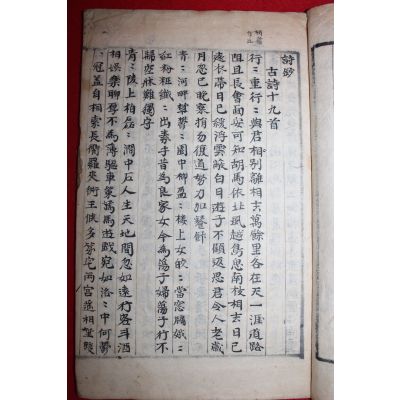 詩抄
古詩十九首
行〻重行〻與君相別離相去萬餘里各在天一涯道路
阻且長會面安可知胡馬依北風越鳥思南枝相去日已
遠衣帶日已緩浮雲蔽白日遊子不顧返思君令人老歲
月忽已晩棄捐勿復道努力加餐飯
青〻河畔草鬱〻園中柳盈〻樓上女皎〻當窓牖娥〻
紅粉粧纖〻出素手昔爲良家女今爲蕩子婦蕩子行不
歸空牀難獨守
青〻陵上柏磊〻澗中石人生天地間忽如遠行客斗酒
相娛樂聊厚不爲薄驅車策駑馬遊戱宛如洛〻中何鬱
〻冠盖自相索長衢羅夾術王侯多第宅兩宮遙相望雙